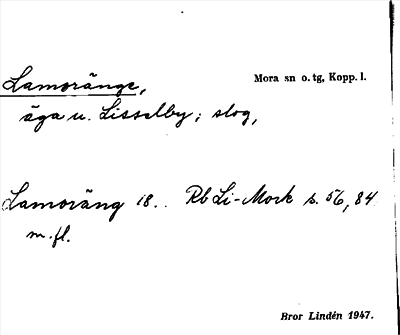 Lamoränge,
Mora sn o. tg, Kopp. l.
äga u. Lisselby; slog,
Lamoräng 18.. Rb Li-Mork s. 56, 84
m.fl.
Bror Lindén 1947.